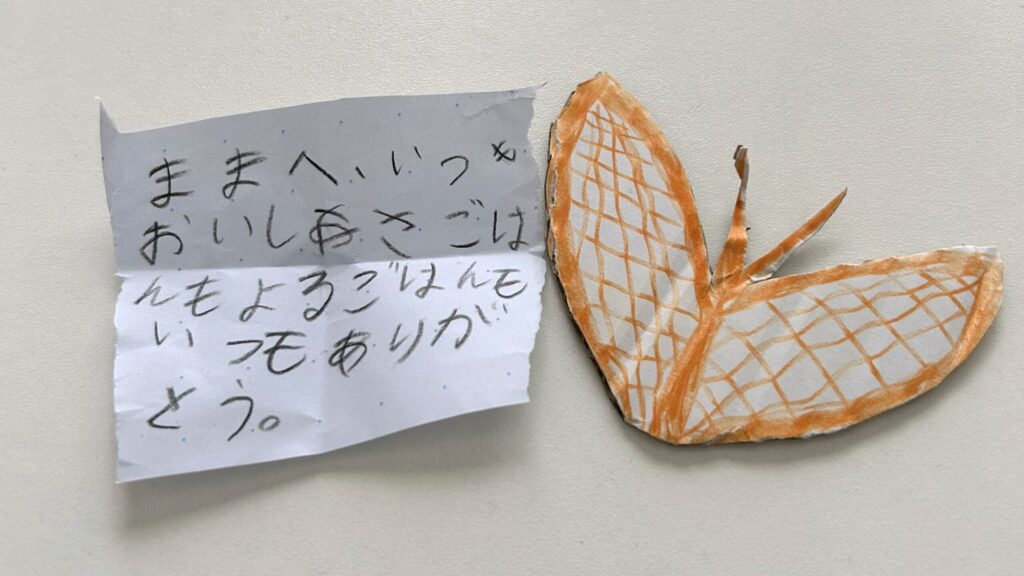 ままへ、いつも
おいしあさごは
んもよるごはんも
いつもありが
とう。